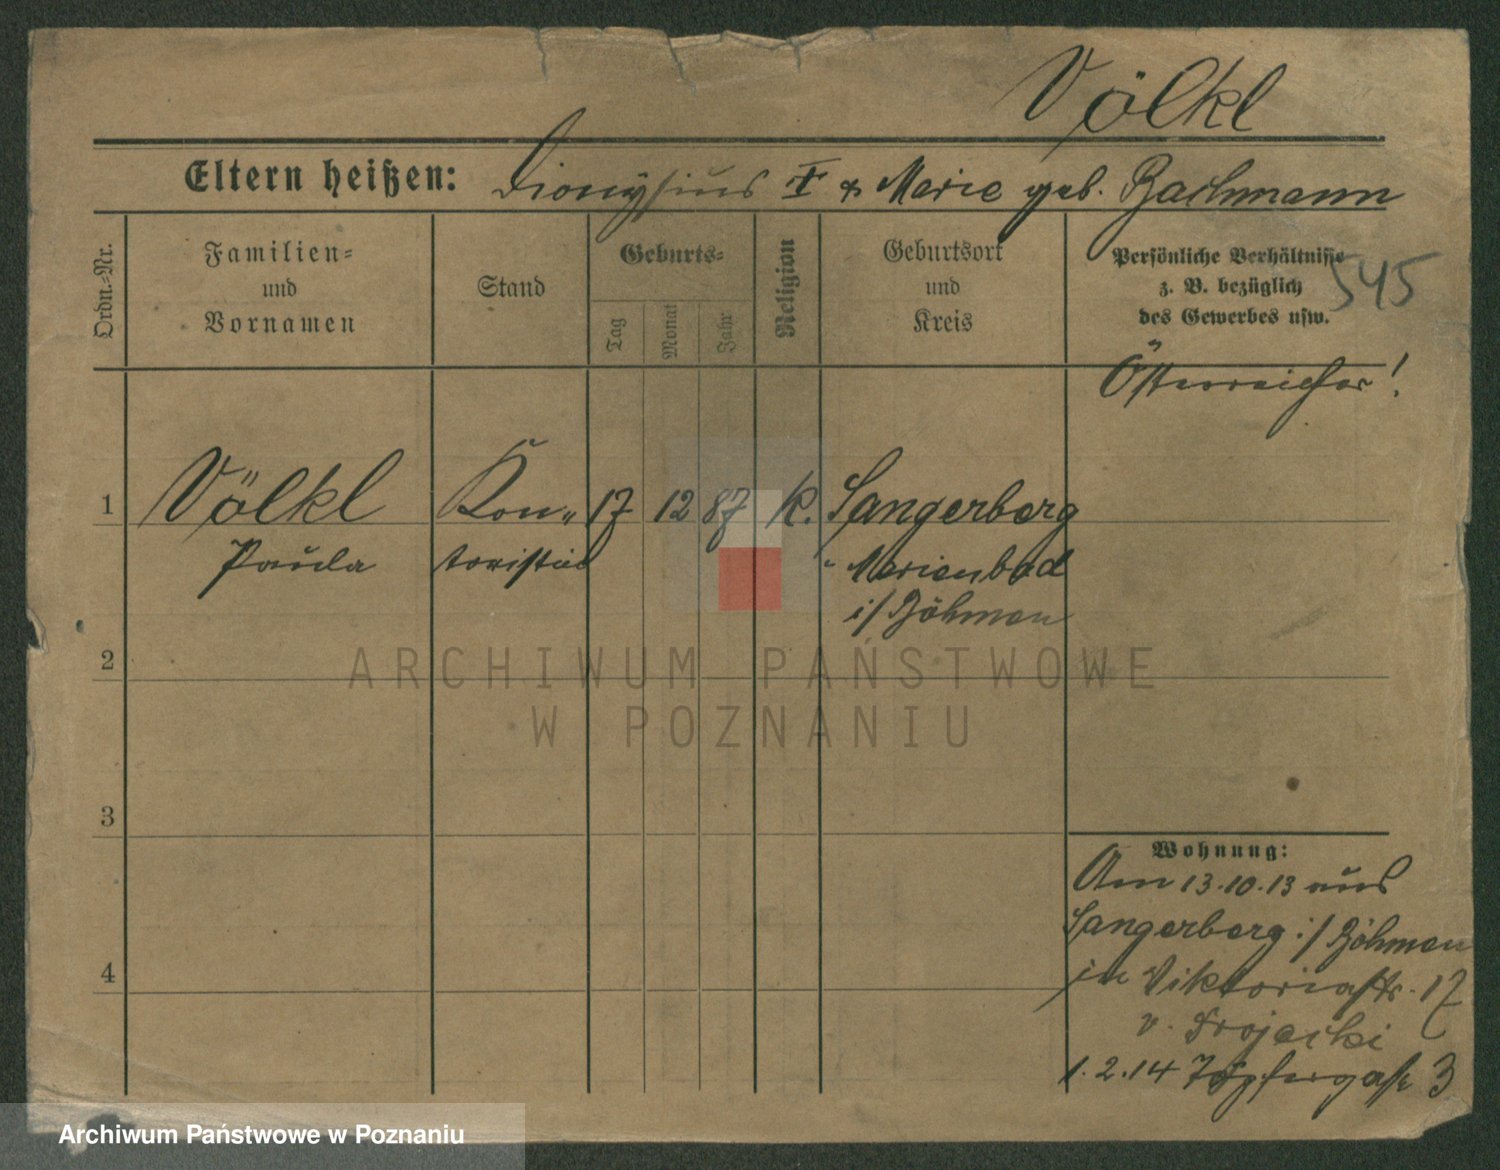 Völkl
Eltern heißen: Dionysius † & Marie geb. Bachmann
Ordn.-Nr.
Familien-
und
Vornamen
Stand
Geburts-
Tag
Monat
Jahr
Religion
Geburtsort
und
Kreis
Persönliche Verhältnisse
z. B. bezüglich
des Gewerbes usw.
545
Österreicher!
1 Völkl Kon- 17 12 87 k. Sangerberg
Paula toristin Marienbad
i/Böhmen
2
3
4
Wohnung:
Am 13.10.13 aus
Sangerberg i/Böhmen
in Viktoriastr. 17
v. Trojacki
1.2.14 Töpfergasse 3
ARCHIWUM PAŃSTWOWE
W POZNANIU
Archiwum Państwowe w Poznaniu